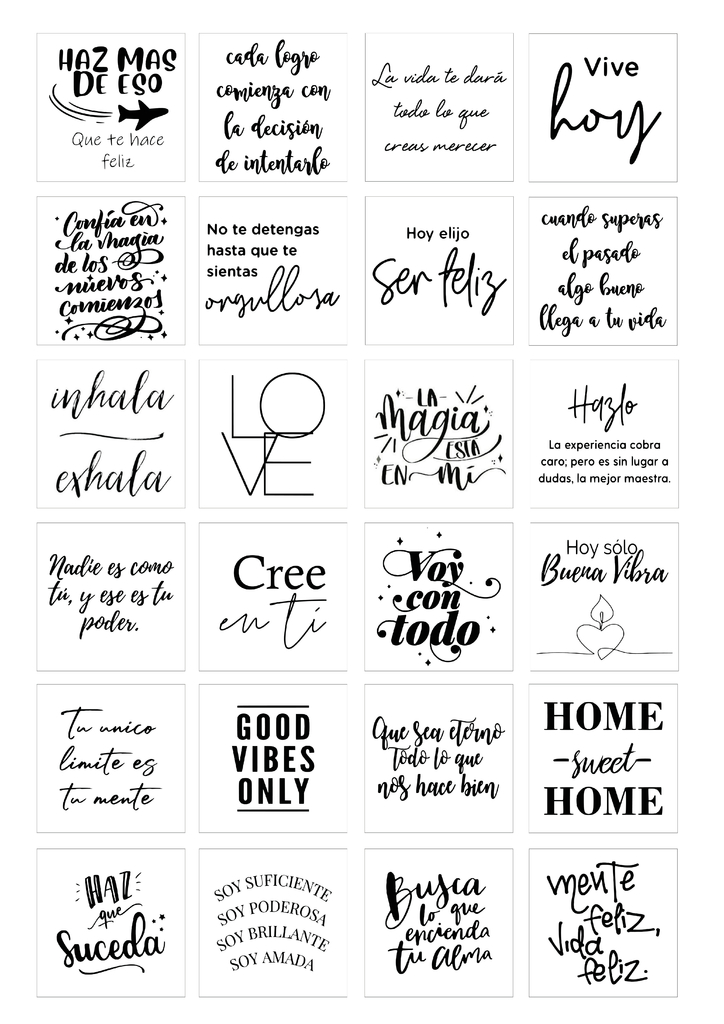 HAZ MAS
DE ESO
Que te hace
feliz
cada logro
comienza con
la decisión
de intentarlo
La vida te dará
todo lo que
creas merecer
Vive
hoy
Confía en
la magia
de los
nuevos
comienzos
No te detengas
hasta que te
sientas
orgullosa
Hoy elijo
ser feliz
cuando superas
el pasado
algo bueno
llega a tu vida
inhala
exhala
LO
VE
LA
Magia
ESTÁ
EN Mí
Hazlo
La experiencia cobra
caro; pero es sin lugar a
dudas, la mejor maestra.
Nadie es como
tú, y ese es tu
poder.
Cree
en ti
Voy
con
todo
Hoy sólo
Buena Vibra
Tu unico
limite es
tu mente
GOOD
VIBES
ONLY
Que sea eterno
Todo lo que
nos hace bien
HOME
-sweet-
HOME
HAZ
que
Suceda
SOY SUFICIENTE
SOY PODEROSA
SOY BRILLANTE
SOY AMADA
Busca
lo que
encienda
tu alma
mente
feliz,
vida
feliz.